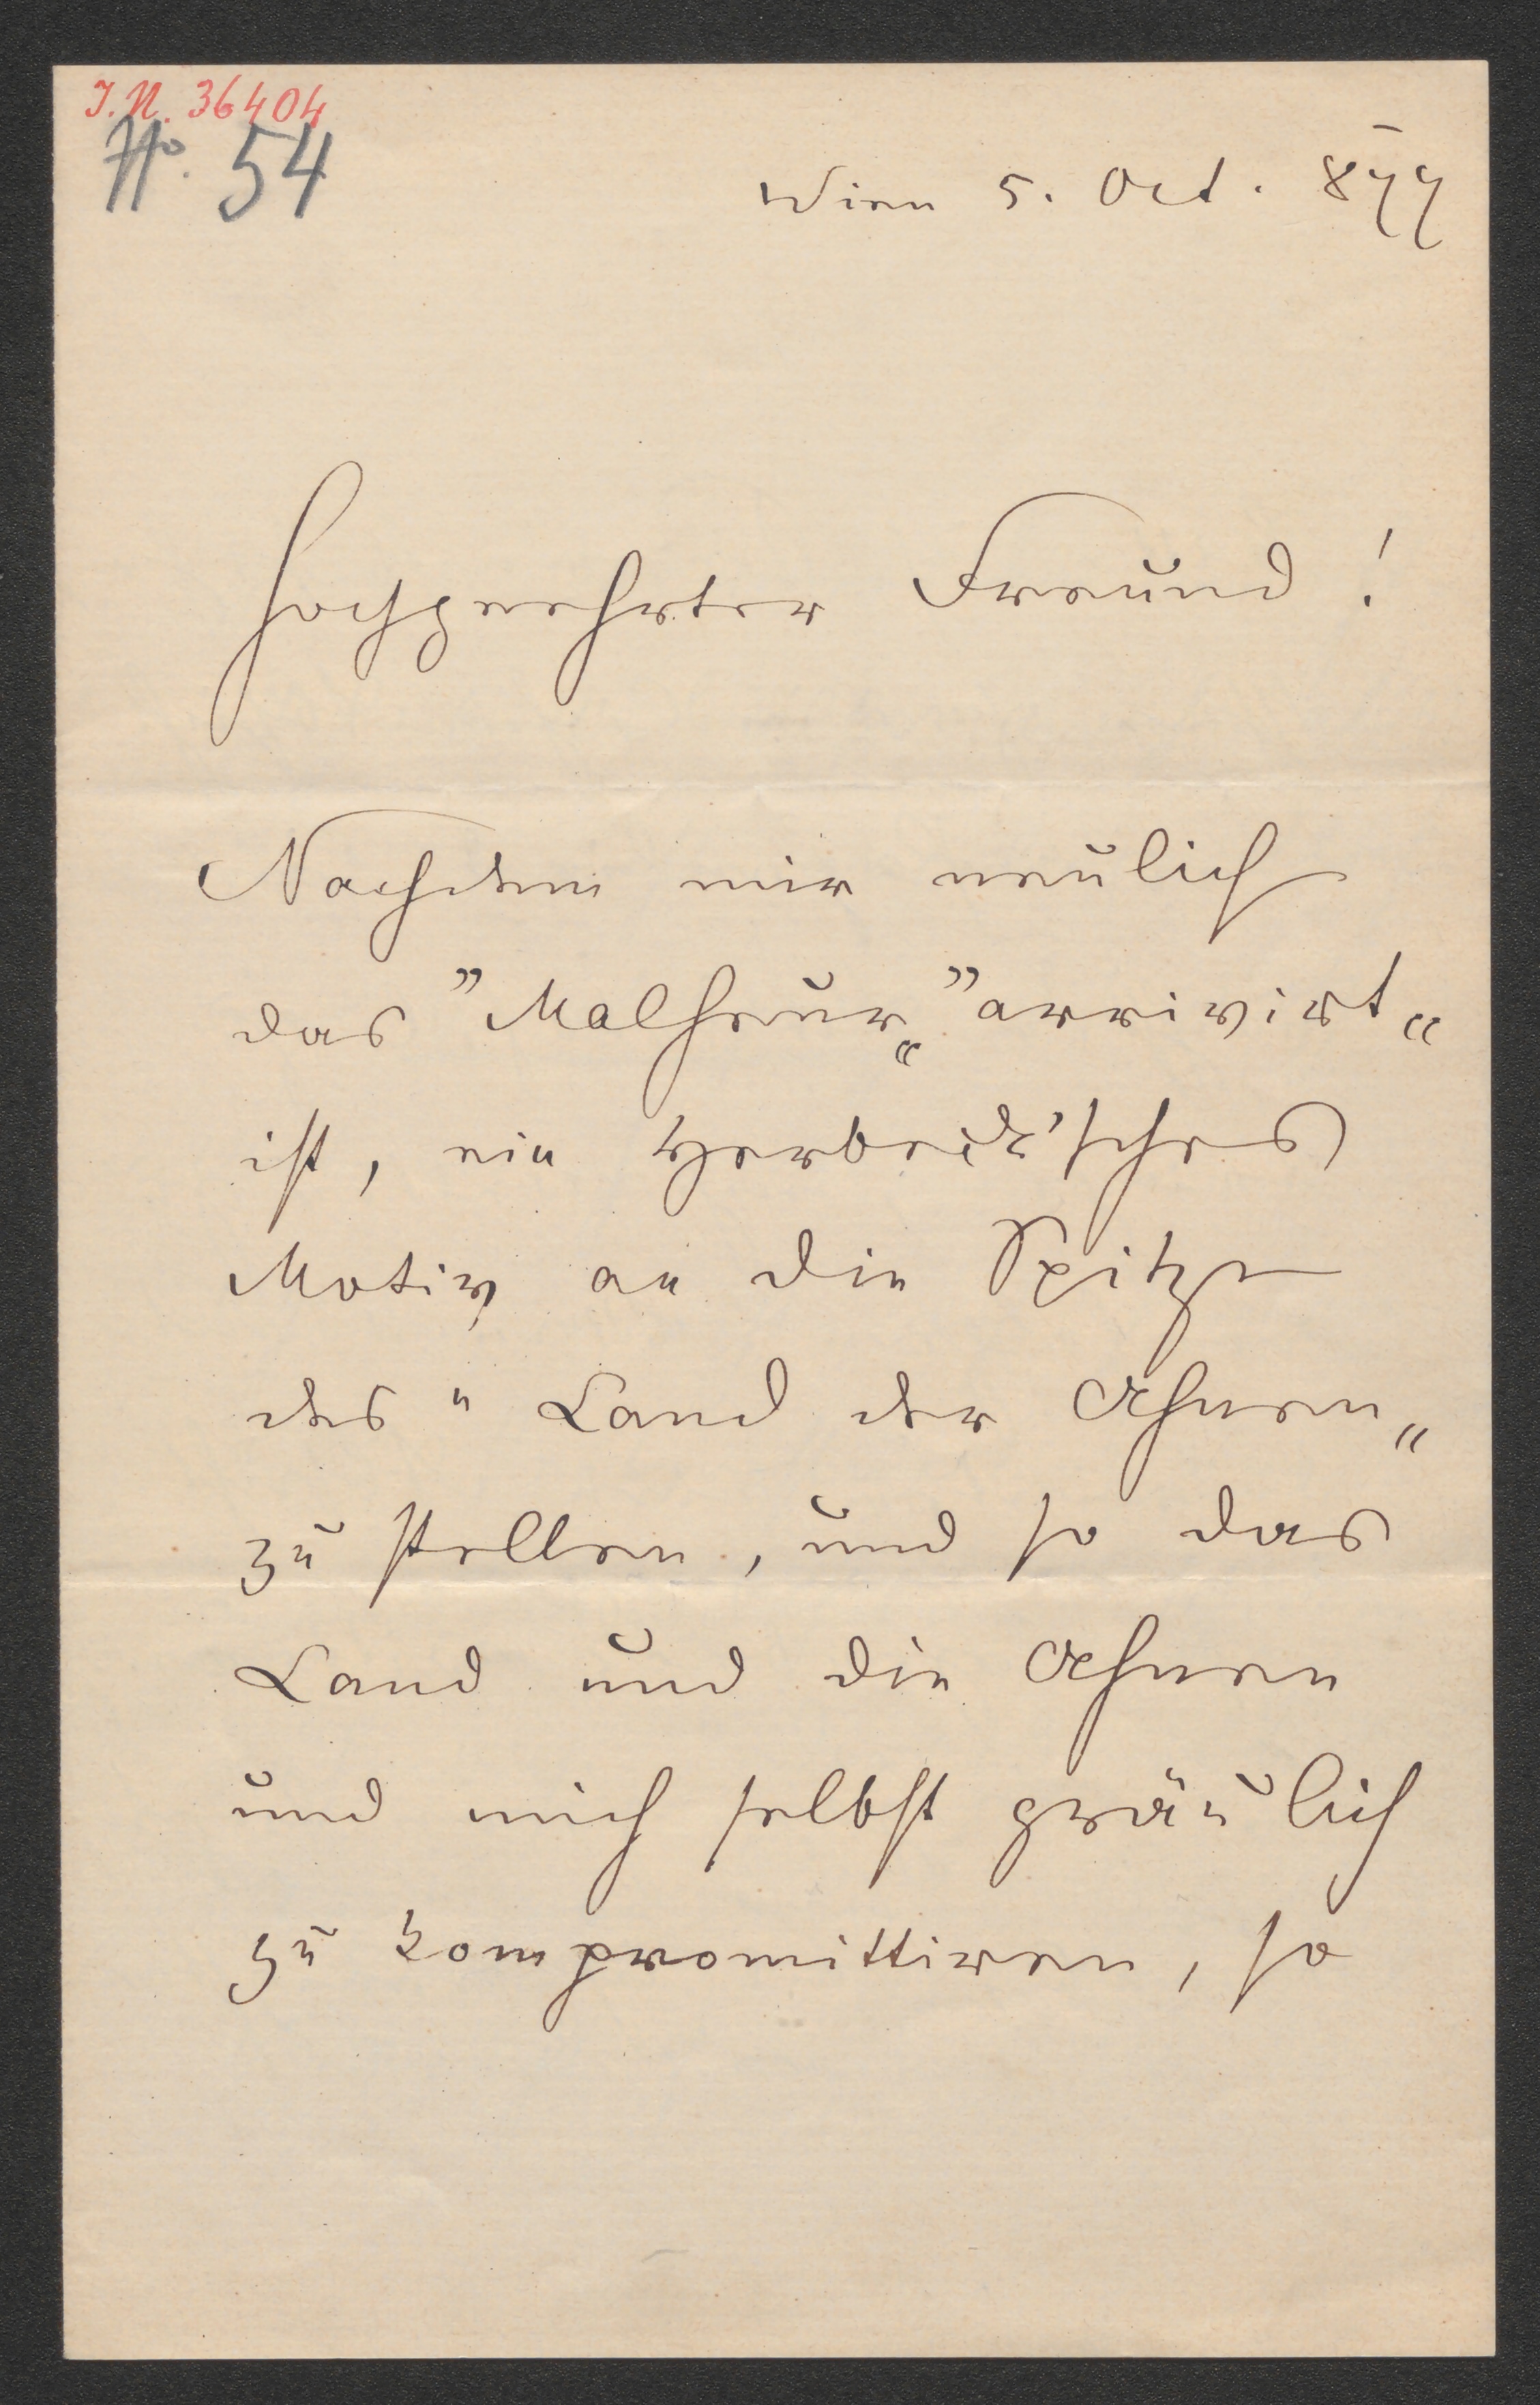 I.N. 36404
No. 54
Wien 5. Oct. 877
Hochgeehrter Freund!
Nachdem mir neulich
das "Malheur" "arrivirt"
ist, ein Herbeck'sches
Motiv an die Spitze
des "Land der Ahnen"
zu stellen, und so das
Land und die Ahnen
und mich selbst gräulich
zu kompromittiren, so